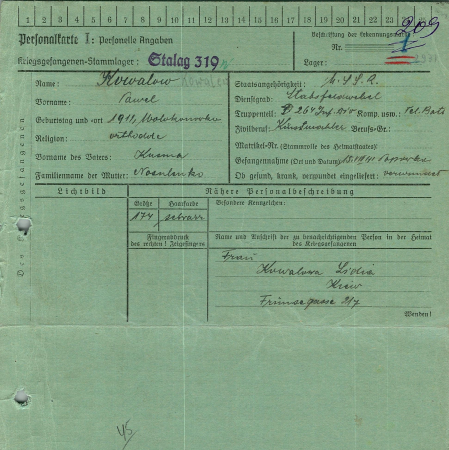 1 2 3 4 5 6 7 8 9 10 11 12 13 14 15 16 17 18 19 20 21 22 23 24 25
Personalkarte I: Personelle Angaben
Kriegsgefangenen-Stammlager: Stalag 319
Beschriftung der Erkennungsmarke
Nr. 209
Lager:
Des Kriegsgefangenen
Name: Kowalow
Vorname: Pawel
Geburtstag und -ort 1911, Wolokonowka
Religion: orthodox
Vorname des Vaters: Kusma
Familienname der Mutter: Nosulenko
Staatsangehörigkeit: U.S.S.R.
Dienstgrad: Stabsfeldwebel
Truppenteil: 264 Inf. Div Komp. usw.:
Zivilberuf: Kunstmahler Berufs-Gr.:
Matrikel-Nr. (Stammrolle des Heimatstaates):
Gefangennahme (Ort und Datum):
Ob gesund, krank, verwundet eingeliefert: verwundet
Lichtbild
Nähere Personalbeschreibung
Größe
Haarfarbe
Besondere Kennzeichen:
174
schwarz
Fingerabdruck
des rechten! Zeigefingers
Name und Anschrift der zu benachrichtigenden Person in der Heimat
des Kriegsgefangenen
Frau
Kowalowa Lidia
Kiew
Frunsegasse 217
Wenden!
45